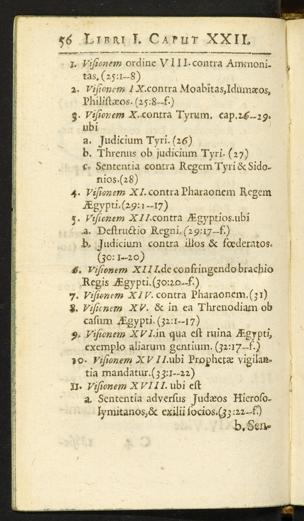 56 LIBRI I. CAPUT XXII.
1. Visionem ordine VIII. contra Ammoni-
tas. (25:1--8)
2. Visionem IX. contra Moabitas, Idumæos,
Philistæos. (25:8--f.)
3. Visionem X. contra Tyrum. cap. 26--29.
ubi
a. Judicium Tyri. (26)
b. Threnus ob judicium Tyri. (27)
c. Sententia contra Regem Tyri & Sido-
nios. (28)
4. Visionem XI. contra Pharaonem Regem
Ægypti. (29:1--17)
5. Visionem XII. contra Ægyptios. ubi
a. Destructio Regni. (29:17--f.)
b. Judicium contra illos & fœderatos.
(30:1--20)
6. Visionem XIII. de confringendo brachio
Regis Ægypti. (30:20--f.)
7. Visionem XIV. contra Pharaonem. (31)
8. Visionem XV. & in ea Threnodiam ob
casum Ægypti. (32:1--17)
9. Visionem XVI. in qua est ruina Ægypti,
exemplo aliarum gentium. (32:17--f.)
10. Visionem XVII. ubi Prophetæ vigilan-
tia mandatur. (33:1--22)
11. Visionem XVIII. ubi est
a. Sententia adversus Judæos Hieroso-
lymitanos, & exilii socios. (33:22--f.)
b. Sen-